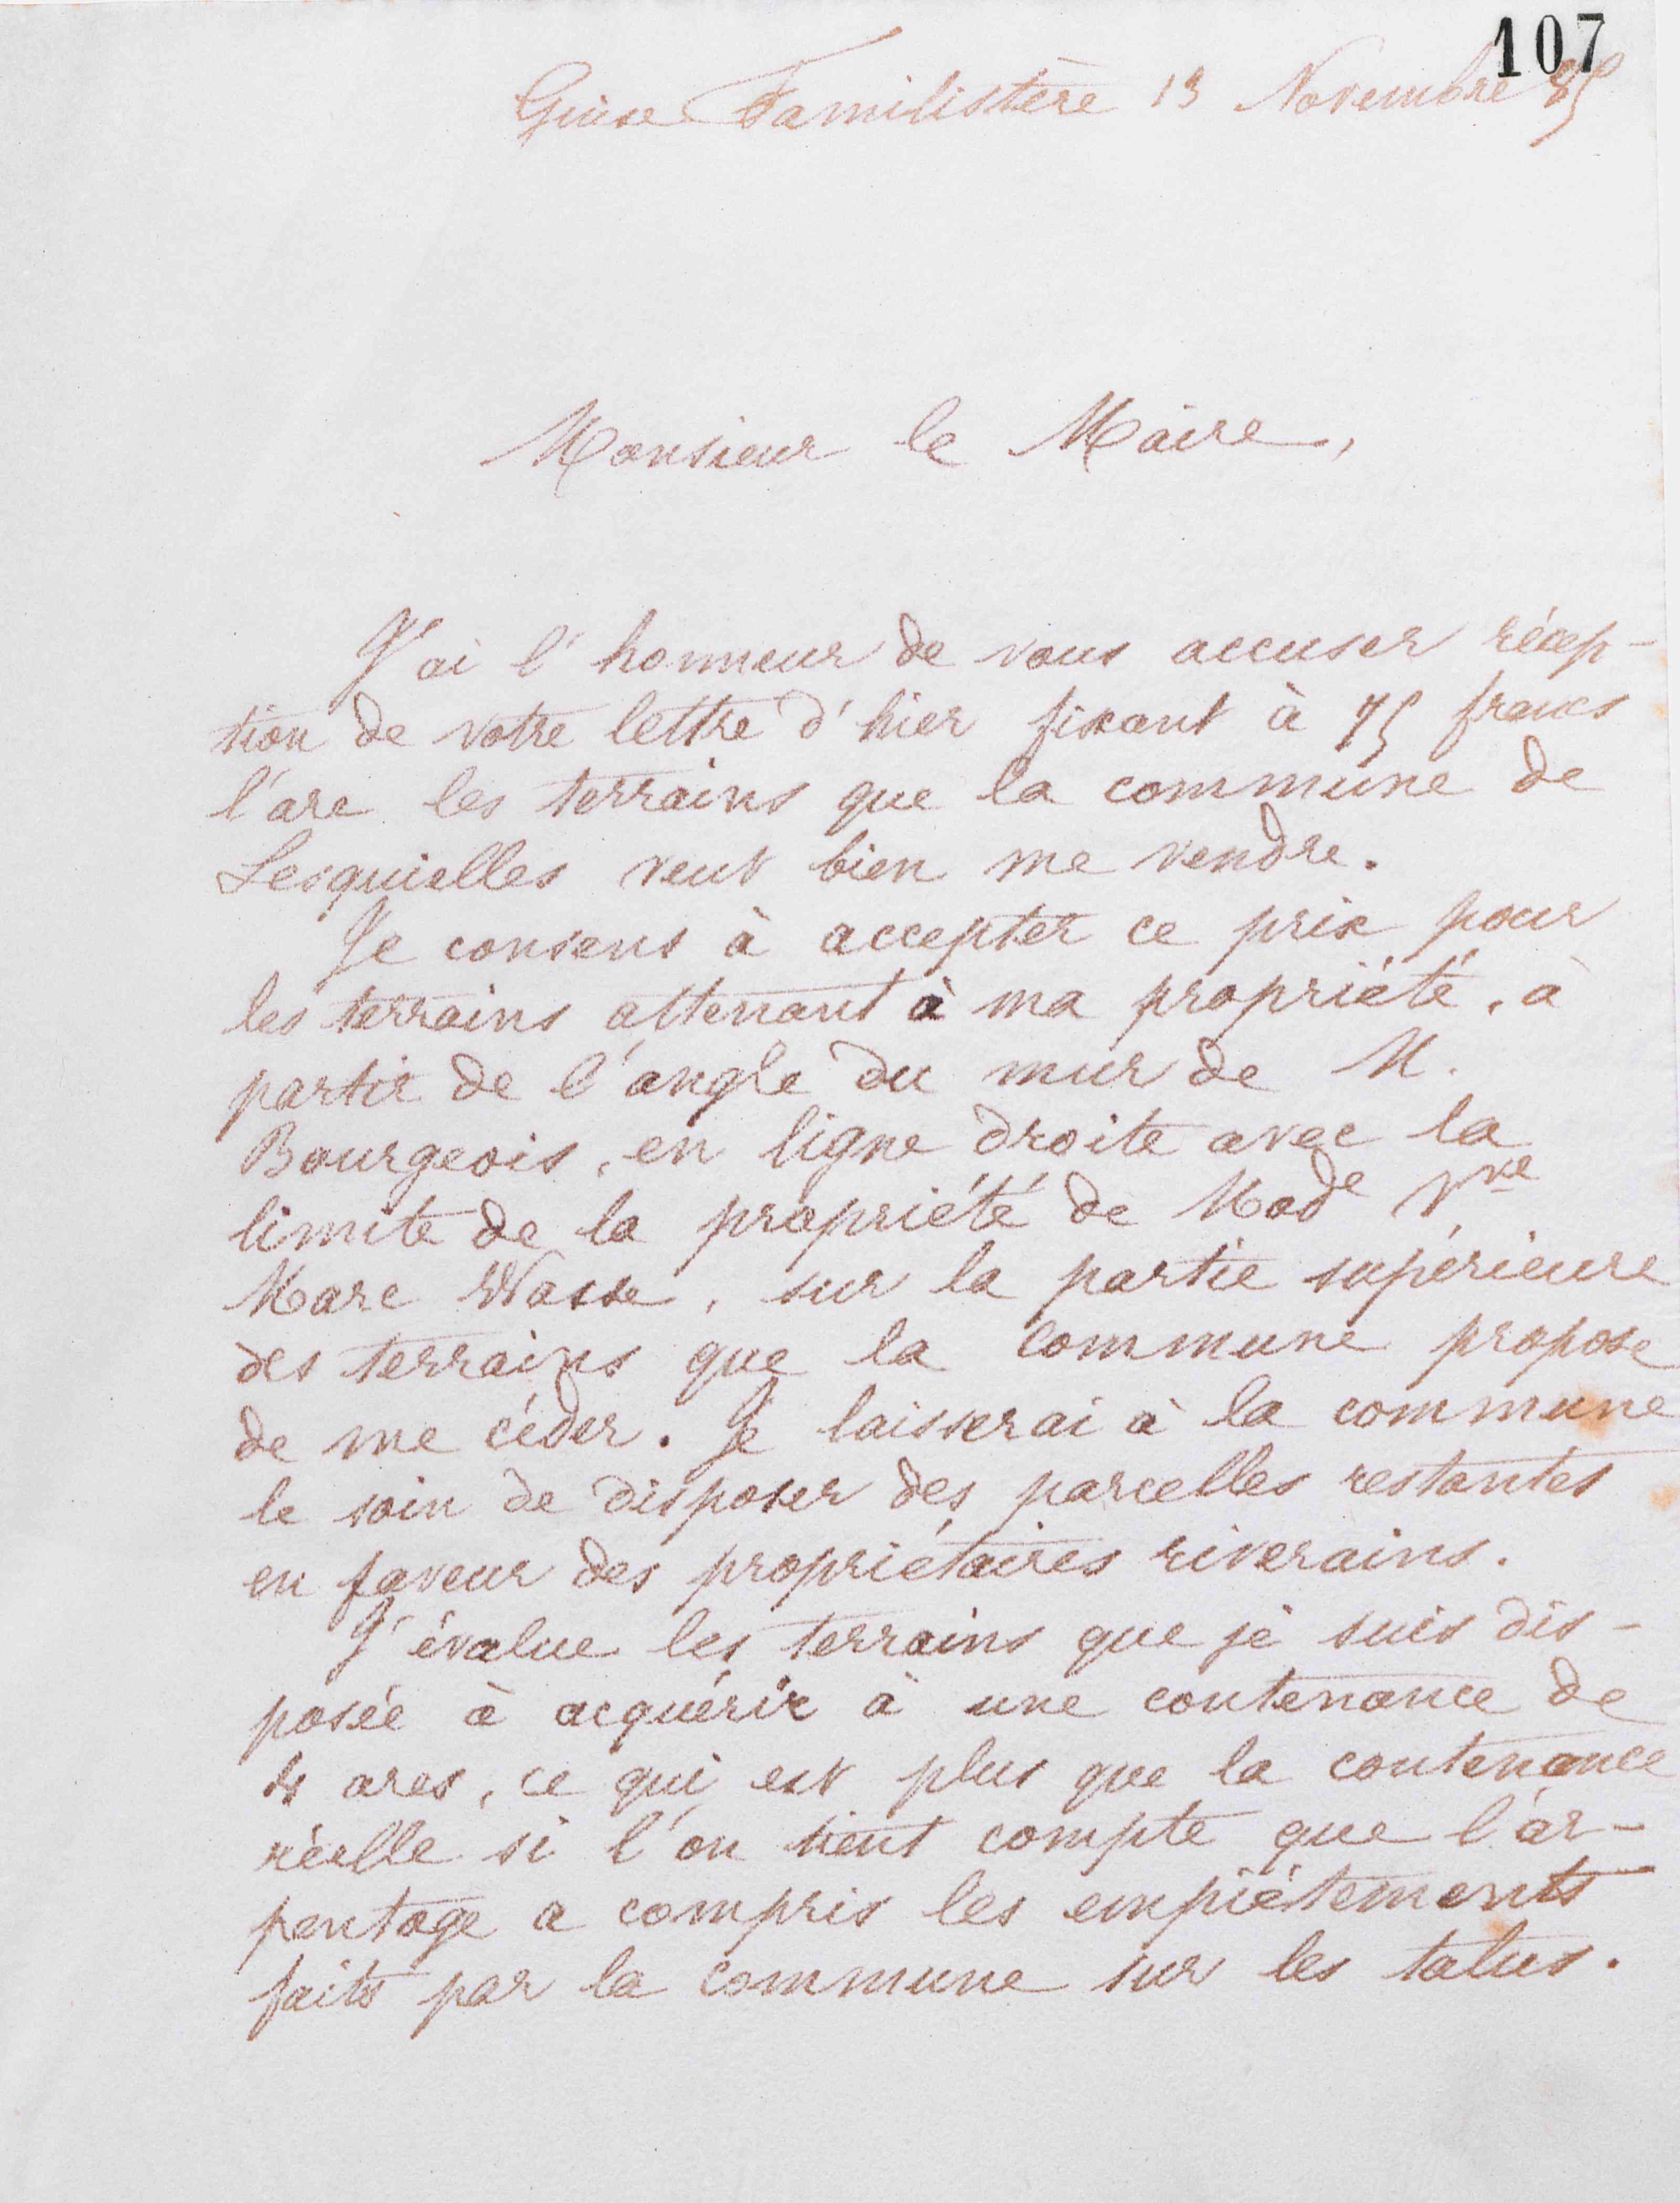 107
Guise Familistère 13 Novembre 85
Monsieur le Maire,
J'ai l'honneur de vous accuser récep-
tion de votre lettre d'hier fixant à 75 francs
l'are les terrains que la commune de
Lesquielles veut bien me vendre.
Je consens à accepter ce prix pour
les terrains attenant à ma propriété, à
partir de l'angle du mur de M.
Bourgeois, en ligne droite avec la
limite de la propriété de Made Vve
Marc Wasse, sur la partie supérieure
des terrains que la commune propose
de me céder. Je laisserai à la commune
le soin de disposer des parcelles restantes
en faveur des propriétaires riverains.
J'évalue les terrains que je suis dis-
posée à acquérir à une contenance de
4 ares, ce qui est plus que la contenance
réelle si l'on tient compte que l'ar-
pentage a compris les empiètements
faits par la commune sur les talus.